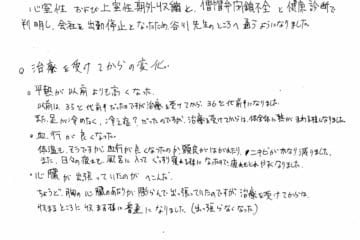 心室性 および上室性期外収縮と、僧帽弁閉鎖不全 と健康診断で
判明し、会社を出勤停止となったため谷川先生のところへ通うようになりました。
○ 治療を受けてからの変化。
○平熱が以前よりも高くなった。
以前は、35℃代前半だったのですが治療を受けてから、36℃代前半になりました。
また、足が冷めたく、冷え症？だったのですが、治療を受けてからは、体全体に熱がまわる様になりました。
○血行が良くなった。
体温も、そうですが血行が良くなったのか顔色がほがれたり、ニキビがかなり減りました。
また、日々の疲れも、風呂に入って ぐっすり寝る様になったので疲れもとれやすくなりました。
○心臓が出張っていたのがへこんだ。
ちょうど、胸の心臓のあたりが膨らんで出っ張っていたのですが、治療を受けてからは、
収まるところに収まる様に 普通になりました（出っ張らなくなった）